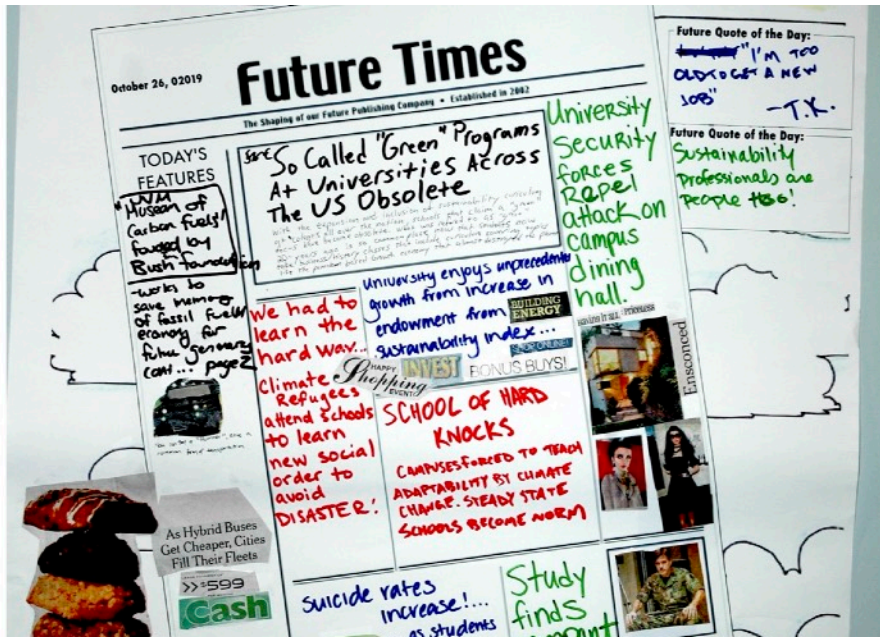 October 26, 02019
Future Times
The Shaping of our Future Publishing Company • Established in 2002
TODAY'S
FEATURES
UVM
Museum of
Carbon fuels"
founded by
Bush foundation
-works to
save memory
of fossil fuel
economy for
future
cont... page 2
So Called "Green" Programs
At Universities Across
The US Obsolete
University
Security
forces
Repel
attack on
campus
dining
hall.
we had to
learn the
hard way...
Climate
Refugees
attend schools
to learn
new social
order to
avoid
DISASTER!
University enjoys unprecedented
growth from increase in
endowment from
sustainability index...
BUILDING
ENERGY
SHOP ONLINE!
HAPPY
Shopping
EVENT!
INVEST
BONUS BUYS!
SCHOOL OF HARD
KNOCKS
CAMPUSES FORCED TO TEACH
ADAPTABILITY BY CLIMATE
CHANGE. STEADY STATE
SCHOOLS BECOME NORM
Having it all: Priceless
Ensconced
As Hybrid Buses
Get Cheaper, Cities
Fill Their Fleets
>>$599
Cash
Suicide rates
increase!...
as students
Study
finds
Future Quote of the Day:
"I'M TOO
OLD TO GET A NEW
JOB"
—T.K.
Future Quote of the Day:
Sustainability
Professionals are
People too!